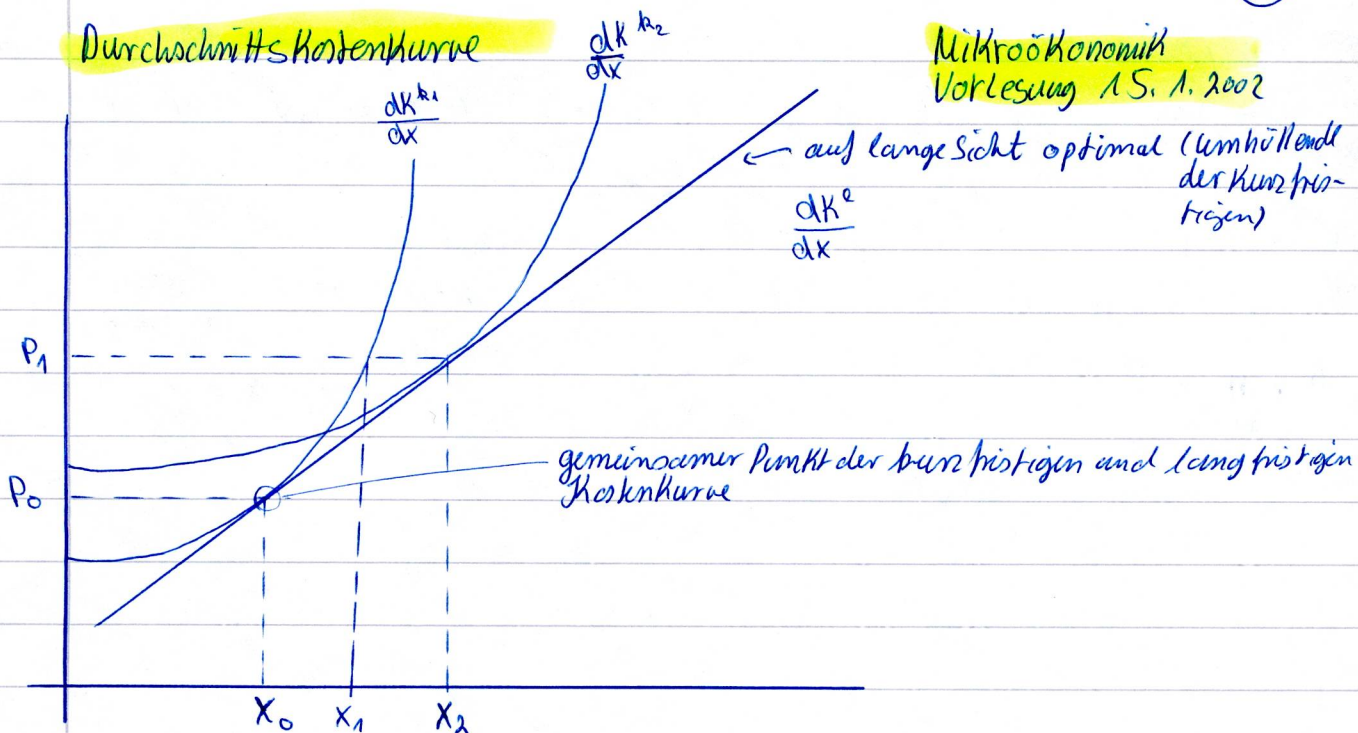 Durchschnittskostenkurve
Mikroökonomik
Vorlesung 15. 1. 2002
dK^k1
dx
dK^k2
dx
← auf lange Sicht optimal (Umhüllende
der kurzfris-
tigen)
dK^l
dx
P1
P0
gemeinsamer Punkt der kurzfristigen und langfristigen
Kostenkurve
X0 X1 X2